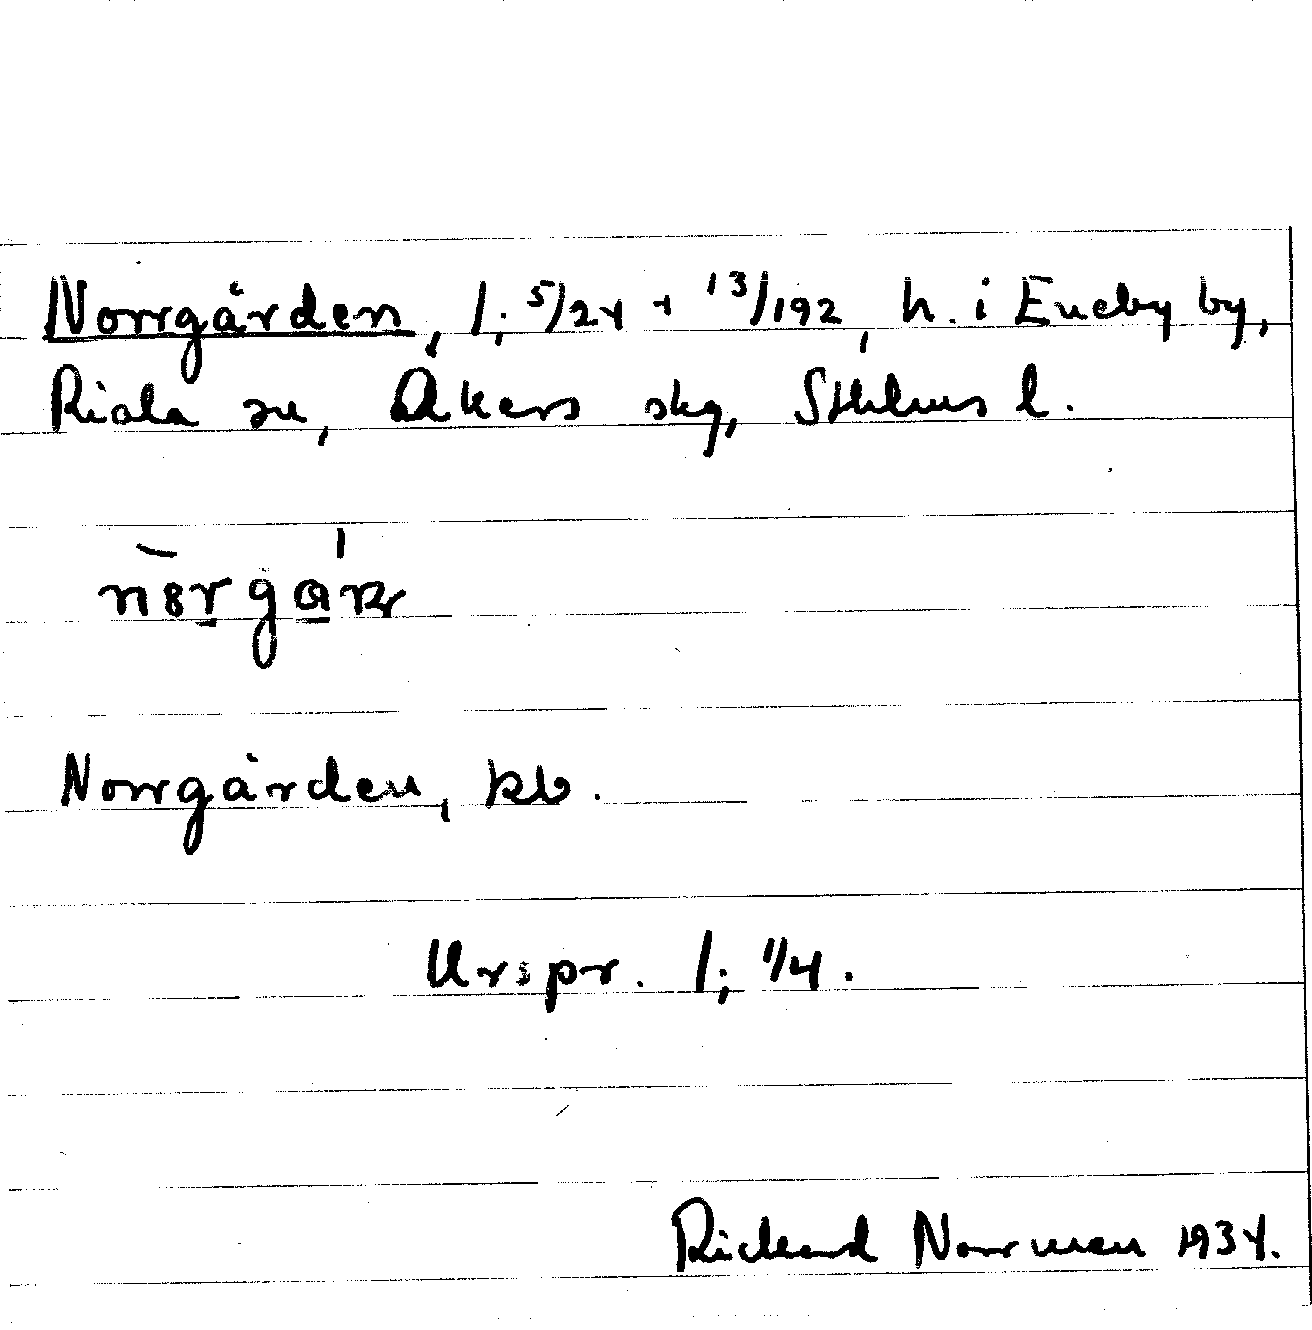 Norrgården, 1; 5/24 + 13/192, h. i Eneby by,
Riala sn, Åkers skg, Sthlms l.
Norrgården, kb.
Urspr. 1; 1/4.
Richard Norrman 1934.